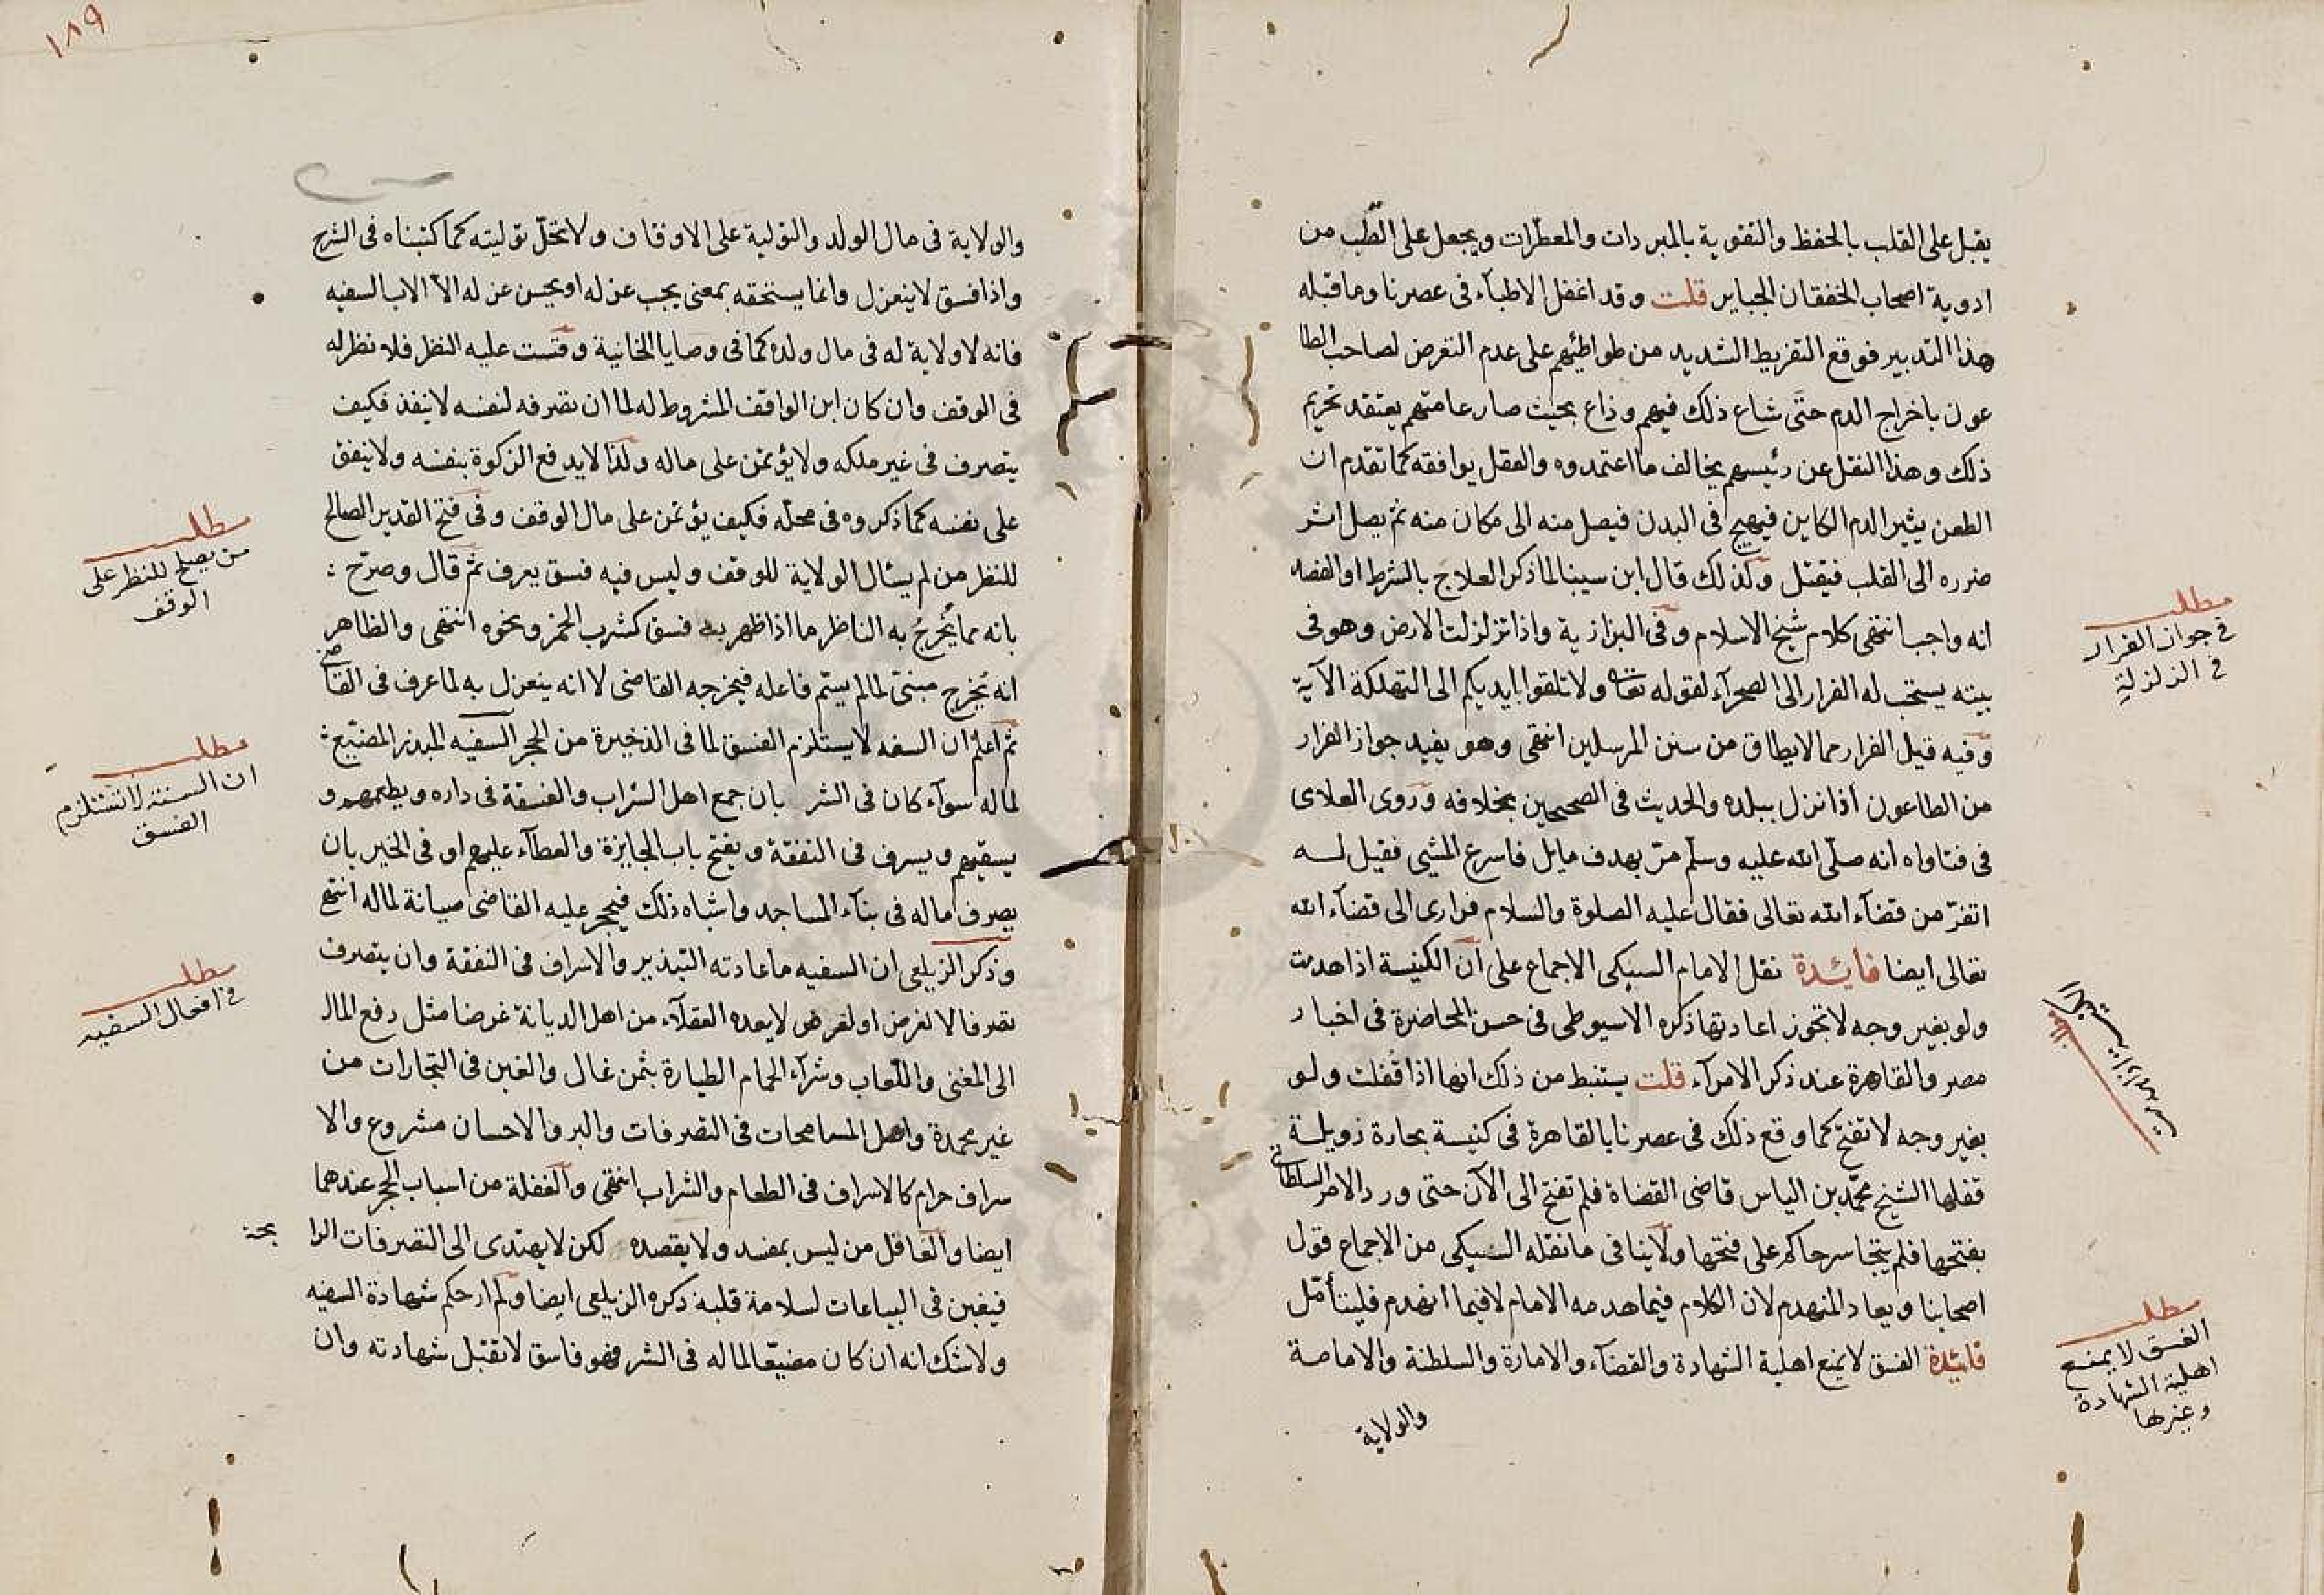 يقبل على القلب بالحفظ والتقوية بالمبردات والمعطرات ويجعل على القلب من
ادوية اصحاب الخفقان الجباير قلت وقد اغفل الاطبآء فى عصرنا وما قبله
هذا التدبير فوقع التفريط الشديد من طواطئهم على عدم التعرض لصاحب الطا
عون باخراج الدم حتى شاع ذلك فيهم وذاع بحيث صار عامتهم يعتقد تحريم
ذلك وهذا النقل عن رئيسهم يخالف ما اعتمدوه والعقل يوافقه كما تقدم ان
الطعن يثير الدم الكاين فيهيج فى البدن فيصل منه الى مكان منه ثم يصل اثر
ضرره الى القلب فيقتل وكذلك قال ابن سينا لما ذكر العلاج بالشرط او الفصد
انه واجب انتهى كلام شيخ الاسلام وفى البزازية واذا تزلزلت الارض وهو فى
بيته يستحب له الفرار الى الصحرآء لقوله تعالى ولا تلقوا بايديكم الى التهلكة الآية
وفيه قيل الفرار مما لا يطاق من سنن المرسلين انتهى وهو يفيد جواز الفرار
من الطاعون اذا نزل ببلده والحديث فى الصحيحين بخلافه وروى العلاى
فى فتاواه انه صلى الله عليه وسلم مر بهدف مايل فاسرع المشى فقيل له
اتفر من قضآء الله تعالى فقال عليه الصلوة والسلام فرارى الى قضآء الله
تعالى ايضا فايدة نقل الامام السبكى الاجماع على ان الكنيسة اذا هدمت
ولو بغير وجه لا تجوز اعادتها ذكره الاسيوطى فى حسن المحاضرة فى اخبار
مصر والقاهرة عند ذكر الامرآء قلت يستنبط من ذلك انها اذا قفلت ولو
بغير وجه لا تفتح كما وقع ذلك فى عصرنا بالقاهرة فى كنيسة بحارة زويلة
قفلها الشيخ محمد بن الياس قاضى القضاة فلم تفتح الى الآن حتى ورد الامر السلطانى
بفتحها فلم يتجاسر حاكم على فتحها ولا ينافى ما نقله السبكى من الاجماع قول
اصحابنا ويعاد المنهدم لان الكلام فيما هدمه الامام لا فيما انهدم فليتأمل
فائدة الفسق لا يمنع اهلية الشهادة والقضآء والامارة والسلطنة والامامة
والولاية
مطلب
فى جواز الفرار
فى الزلزلة
مطلب
الفسق لا يمنع
اهلية الشهادة
وغيرها
١٨٩
والولاية فى مال الولد والتولية على الاوقاف ولا تحل توليته كما كتبناه فى الشرح
واذا فسق لا ينعزل وانما يستحقه بمعنى يجب عزله او يحسن عزله الا الاب السفيه
فانه لا ولاية له فى مال ولده كما فى وصايا الخانية وقست عليه النظر فلا نظر له
فى الوقف وان كان ابن الواقف المشروط له لما ان تصرفه لنفسه لا ينفذ فكيف
يتصرف فى غير ملكه ولا يؤتمن على ماله ولذا لا يدفع الزكوة بنفسه ولا ينفق
على نفسه كما ذكروه فى محله فكيف يؤتمن على مال الوقف وفى فتح القدير الصالح
للنظر من لم يسئال الولاية للوقف وليس فيه فسق يعرف ثم قال وصرح
بانه مما يُخرج به الناظر ما اذا ظهر به فسق كشرب الخمر ونحوه انتهى والظاهر
انه يُخرج مبنى لما لم يسم فاعله فيخرجه القاضى لا انه ينعزل به لما عرف فى القاضى
ثم اعلم ان السفه لا يستلزم الفسق لما فى الذخيرة من الحجر السفيه المبذر المضيع
لماله سوآء كان فى الشر بان جمع اهل الشراب والفسقة فى داره ويطعمهم و
يسقيهم ويسرف فى النفقة ويفتح باب الجايزة والعطآء عليهم او فى الخير بان
يصرف ماله فى بنآء المساجد واشباه ذلك فيحجر عليه القاضى صيانة لماله انتهى
وذكر الزيلعى ان السفيه ما عادته التبذير والاسراف فى النفقة وان يتصرف
تصرفا لا لغرض او لغرض لا يعده العقلآء من اهل الديانة غرضا مثل دفع المال
الى المغنى واللعاب وشرآء الحمام الطيارة بثمن غال والغبن فى التجارات من
غير محمدة واهل المسامحات فى التصرفات والبر والاحسان مشروع والا
سراف حرام كالاسراف فى الطعام والشراب انتهى والغفلة من اسباب الحجر عندهما
ايضا والغافل من ليس بمفسد ولا يقصده لكن لا يهتدى الى التصرفات الرا
بحة
فيغبن فى البياعات لسلامة قلبه ذكره الزيلعى ايضا ولم ار حكم شهادة السفيه
ولا شك انه ان كان مضيعا لماله فى الشر فهو فاسق لا تقبل شهادته وان
مطلب
من يصلح للنظر على
الوقف
مطلب
ان السفه لا تستلزم
الفسق
مطلب
فى افعال السفيه